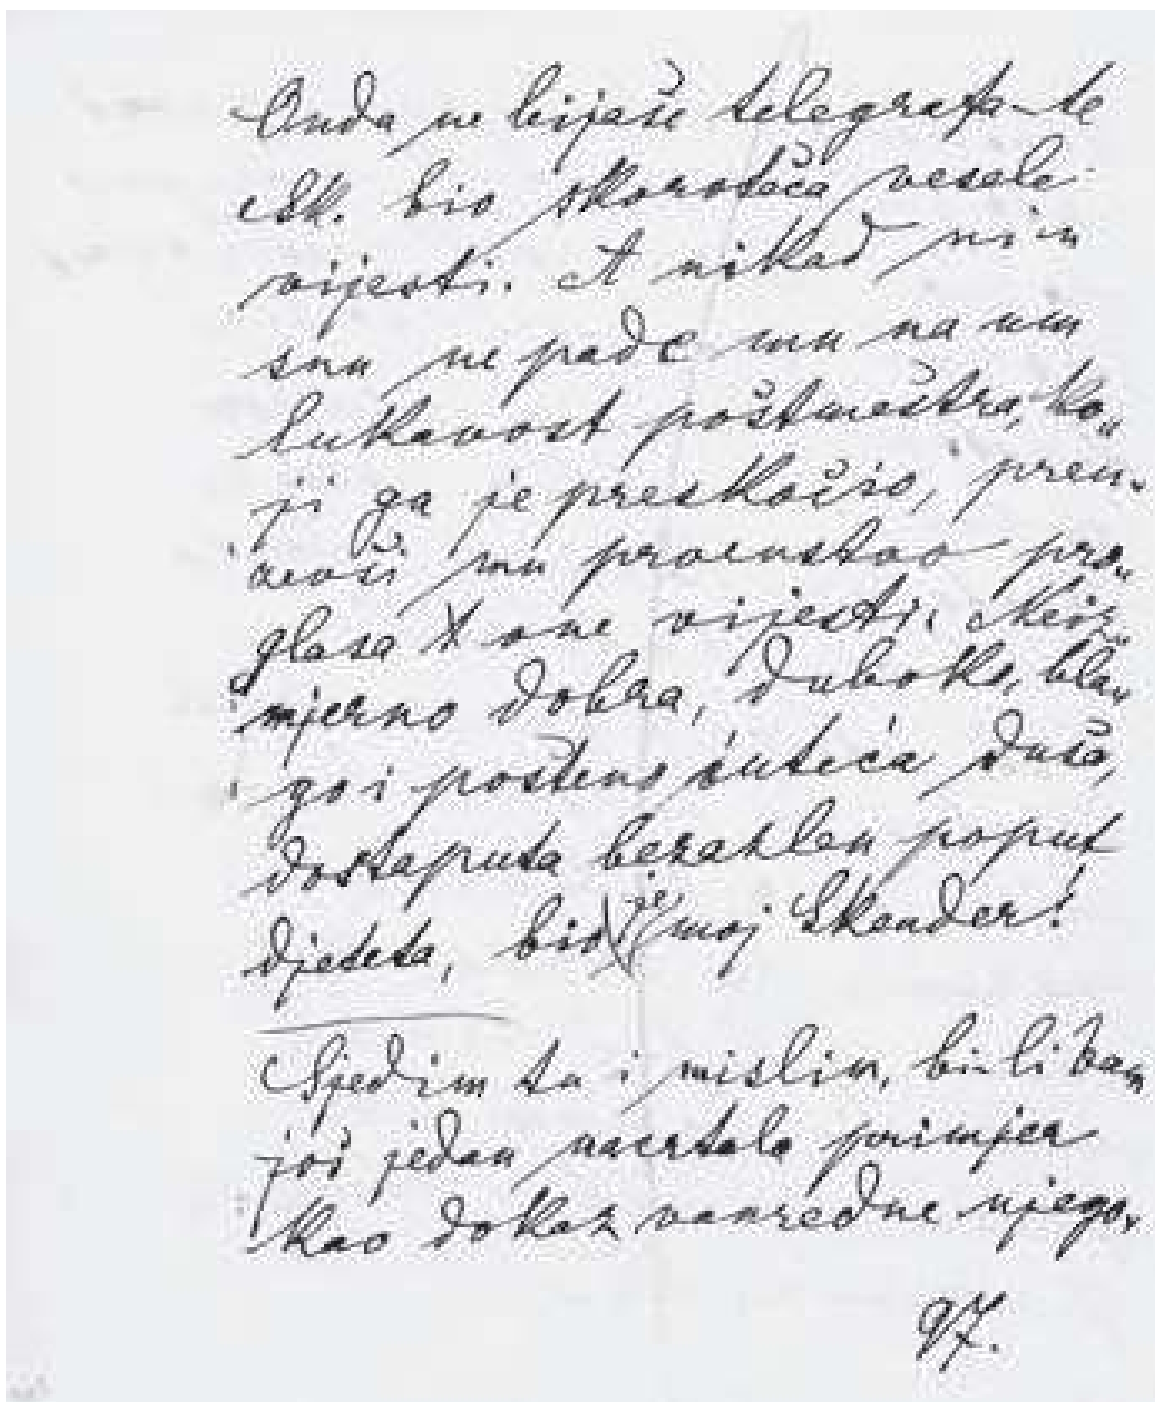 Onda ne bijaše telegrafa te
Sk. bio skoroteča vesele
vijesti. A nikad ni u
snu ne pade mu na um
lukavost poštmeštra, ko„
ji ga je preskočio, preu„
zevši mu prvenstvo pro„
glasa X one vijesti. Neiz„
mjerno dobra, duboko, bla„
go i pošteno ćuteća duša,
dostaputa bezazlen poput
djeteta, bio je moj Skender!
Sjedim tu i mislim, bi li vam
još jedan nacrtala primjer
kao dokaz vanredne njego„
97.